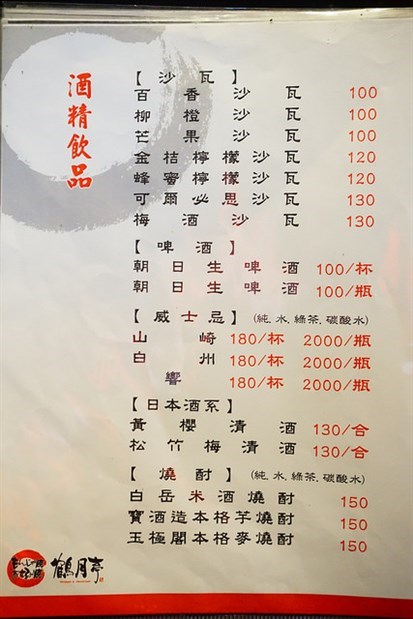 酒精飲品
【沙瓦】
百香沙瓦 100
柳橙沙瓦 100
芒果沙瓦 100
金桔檸檬沙瓦 120
蜂蜜檸檬沙瓦 120
可爾必思沙瓦 130
梅酒沙瓦 130
【啤酒】
朝日生啤酒 100/杯
朝日生啤酒 100/瓶
【威士忌】(純.水.綠茶.碳酸水)
山崎 180/杯 2000/瓶
白州 180/杯 2000/瓶
響 180/杯 2000/瓶
【日本酒系】
黃櫻清酒 130/合
松竹梅清酒 130/合
【燒酎】(純.水.綠茶.碳酸水)
白岳米酒燒酎 150
寶酒造本格芋燒酎 150
玉極閣本格麥燒酎 150
鶴月亭